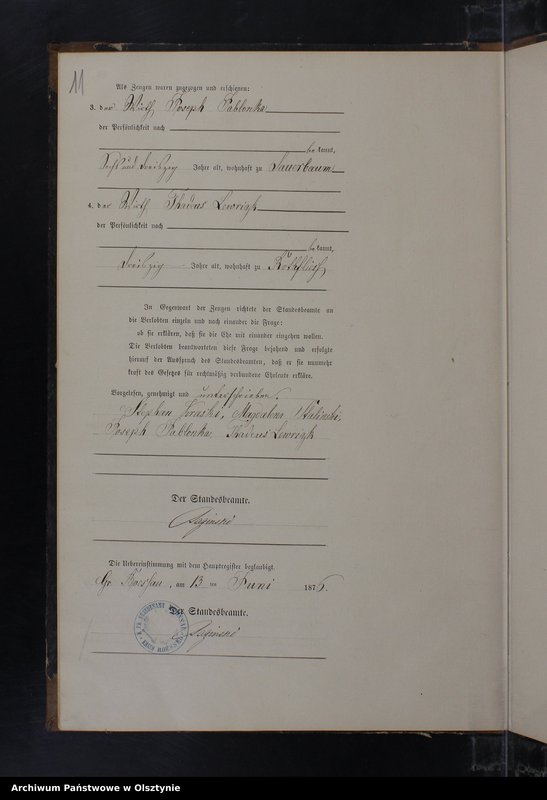 11
Als Zeugen waren zugezogen und erschienen:
3. der Wirth Joseph Jablonka
der Persönlichkeit nach
be kannt,
Sechs und dreißig Jahre alt, wohnhaft zu Sauerbaum
4. der Wirth Thadeus Lewrigk
der Persönlichkeit nach
be kannt,
dreißig Jahre alt, wohnhaft zu Rothfließ
In Gegenwart der Zeugen richtete der Standesbeamte an
die Verlobten einzeln und nach einander die Frage:
ob sie erklären, daß sie die Ehe mit einander eingehen wollen.
Die Verlobten beantworteten diese Frage bejahend und erfolgte
hierauf der Ausspruch des Standesbeamten, daß er sie nunmehr
kraft des Gesetzes für rechtmäßig verbundene Eheleute erkläre.
Vorgelesen, genehmigt und unterschrieben.
Stephan, Magdalena
Joseph Jablonka, Thadeus Lewrigk
Der Standesbeamte.
Die Uebereinstimmung mit dem Hauptregister beglaubigt.
Gr. Boessau, am 13 ten Juni 1876.
Der Standesbeamte.
KREIS ROESSEL
Archiwum Państwowe w Olsztynie